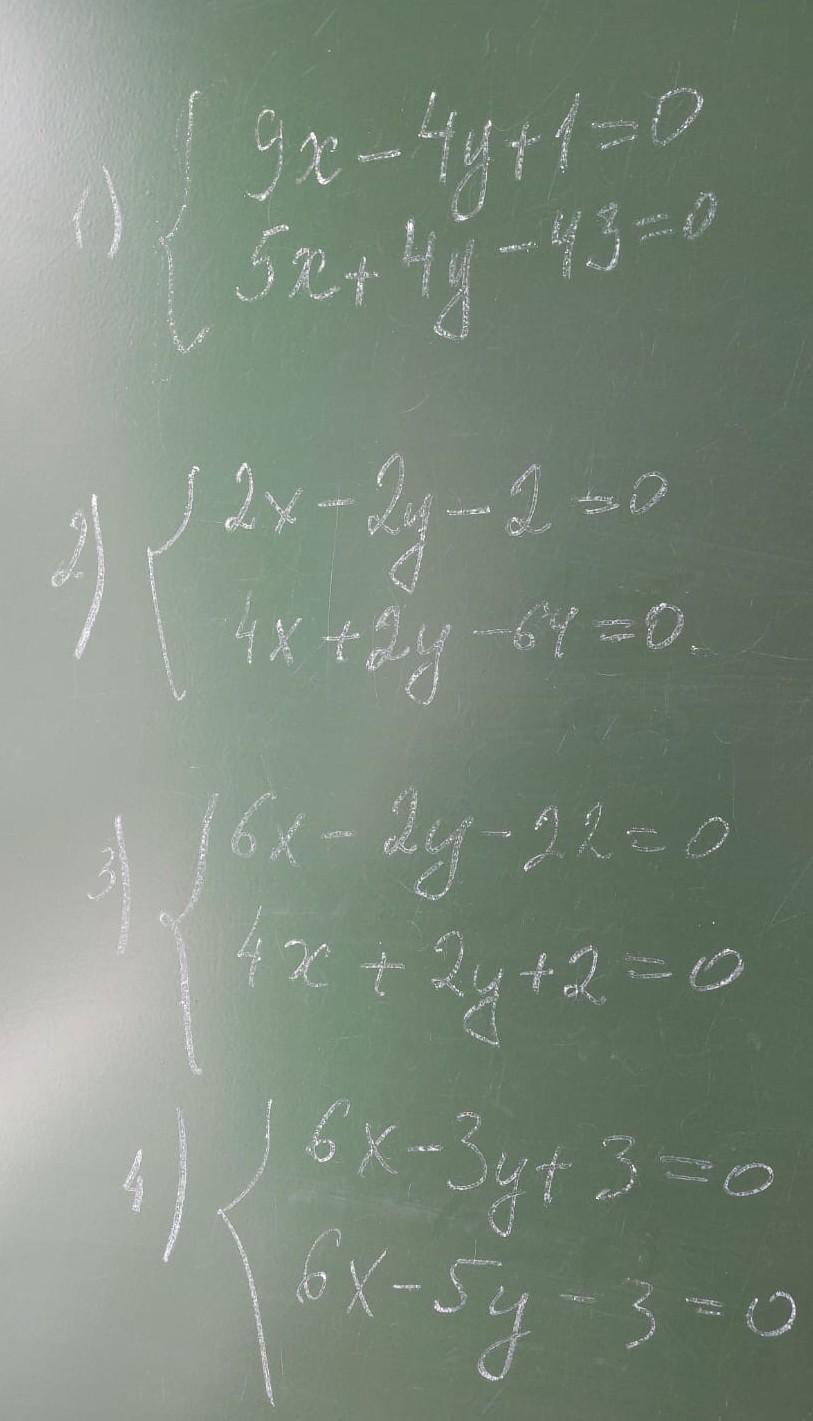 1) { 9x - 4y + 1 = 0
5x + 4y - 43 = 0
2) { 2x - 2y - 2 = 0
4x + 2y - 64 = 0
3) { 6x - 2y - 22 = 0
4x + 2y + 2 = 0
4) { 6x - 3y + 3 = 0
6x - 5y - 3 = 0